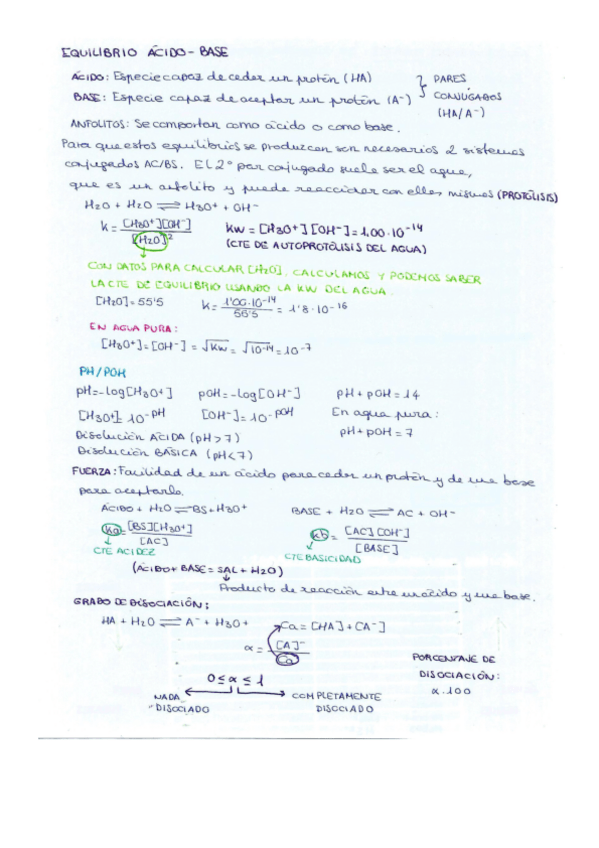 EQUILIBRIO ÁCIDO-BASE
ÁCIDO: Especie capaz de ceder un protón (HA)
BASE: Especie capaz de aceptar un protón (A⁻)
} PARES CONJUGADOS (HA/A⁻)
ANFOLITOS: Se comportan como ácido o como base.
Para que estos equilibrios se produzcan son necesarios 2 sistemas
conjugados AC/BS. El 2º par conjugado suele ser el agua,
que es un anfolito y puede reaccionar con ellas mismas (PROTÓLISIS)
H2O + H2O ⇌ H3O+ + OH⁻
K = [H3O+][OH⁻] / [H2O]² KW = [H3O+][OH⁻] = 1,00·10⁻¹⁴
(CTE DE AUTOPROTÓLISIS DEL AGUA)
CON DATOS PARA CALCULAR [H2O], CALCULAMOS Y PODEMOS SABER
LA CTE DE EQUILIBRIO USANDO LA KW DEL AGUA.
[H2O] = 55'5 K = 1'00·10⁻¹⁴ / 55'5 = 1'8·10⁻¹⁶
EN AGUA PURA:
[H3O+] = [OH⁻] = √KW = √10⁻¹⁴ = 10⁻⁷
PH/POH
pH = -log[H3O+] pOH = -log[OH⁻] pH + pOH = 14
[H3O+] = 10⁻ᵖᴴ [OH⁻] = 10⁻ᵖᴼᴴ En agua pura:
pH + pOH = 7
Disolución ÁCIDA (pH > 7)
Disolución BÁSICA (pH < 7)
FUERZA: Facilidad de un ácido para ceder un protón y de una base
para aceptarlo.
ÁCIDO + H2O ⇌ BS + H3O+ BASE + H2O ⇌ AC + OH⁻
Ka = [BS][H3O+] / [AC] Kb = [AC][OH⁻] / [BASE]
CTE ACIDEZ CTE BASICIDAD
(ÁCIDO + BASE = SAL + H2O)
Producto de reacción entre un ácido y una base.
GRADO DE DISOCIACIÓN:
HA + H2O ⇌ A⁻ + H3O+ Ca = [HA] + [A⁻]
α = [A]⁻ / Ca
PORCENTAJE DE
DISOCIACIÓN:
α·100
0 ≤ α ≤ 1
NADA DISOCIADO COMPLETAMENTE DISOCIADO